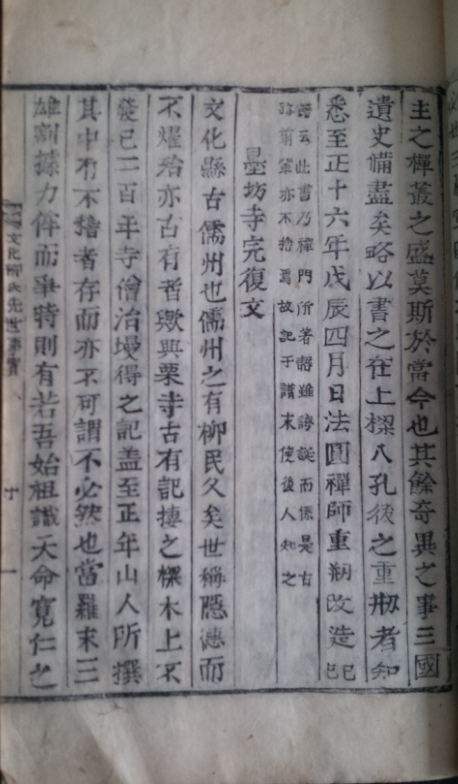 主之禪叢之盛莫斯於當今也其餘奇異之事三國
遺史備盡矣略以書之在上樑八孔後之重刱者知
悉至正十六年戊辰四月日法圓禪師重刱改造記
譜云此書乃禪門所著語雖誇誕而係是古
跡前輩亦不捨焉故記于譜末使後人知之
墨坊寺完復文
文化縣古儒州也儒州之有柳民久矣世稱隱德而
不燿殆亦古有者歟興栗寺古有記摟之樑木上不
發已二百年寺僧治墁得之記盖至正年山人所撰
其中有不稽者存而亦不可謂不必然也當羅末三
雄割據力侔而爭時則有若吾始祖識天命寬仁之
文化柳氏先世事實
十一